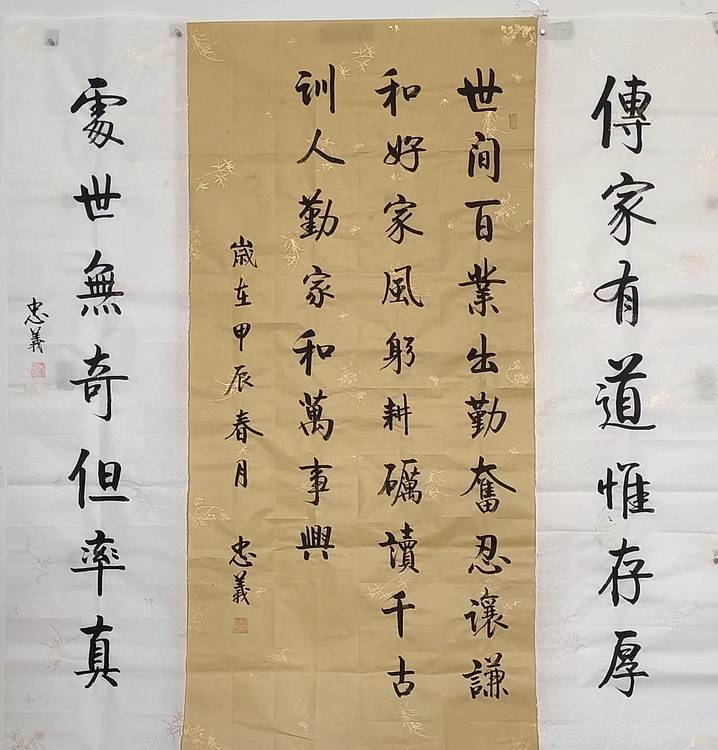 傳家有道惟存厚
世間百業出勤奮忍讓謙
和好家風躬耕礪讀千古
訓人勤家和萬事興
歲在甲辰春月 忠義
處世無奇但率真
忠義